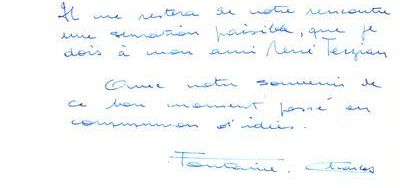 Il me restera de notre rencontre
une sensation paisible, que je
dois à mon ami René Terzian
Avec notre souvenir de
ce bon moment passé en
communion d'idées.
Fontaine. Charles